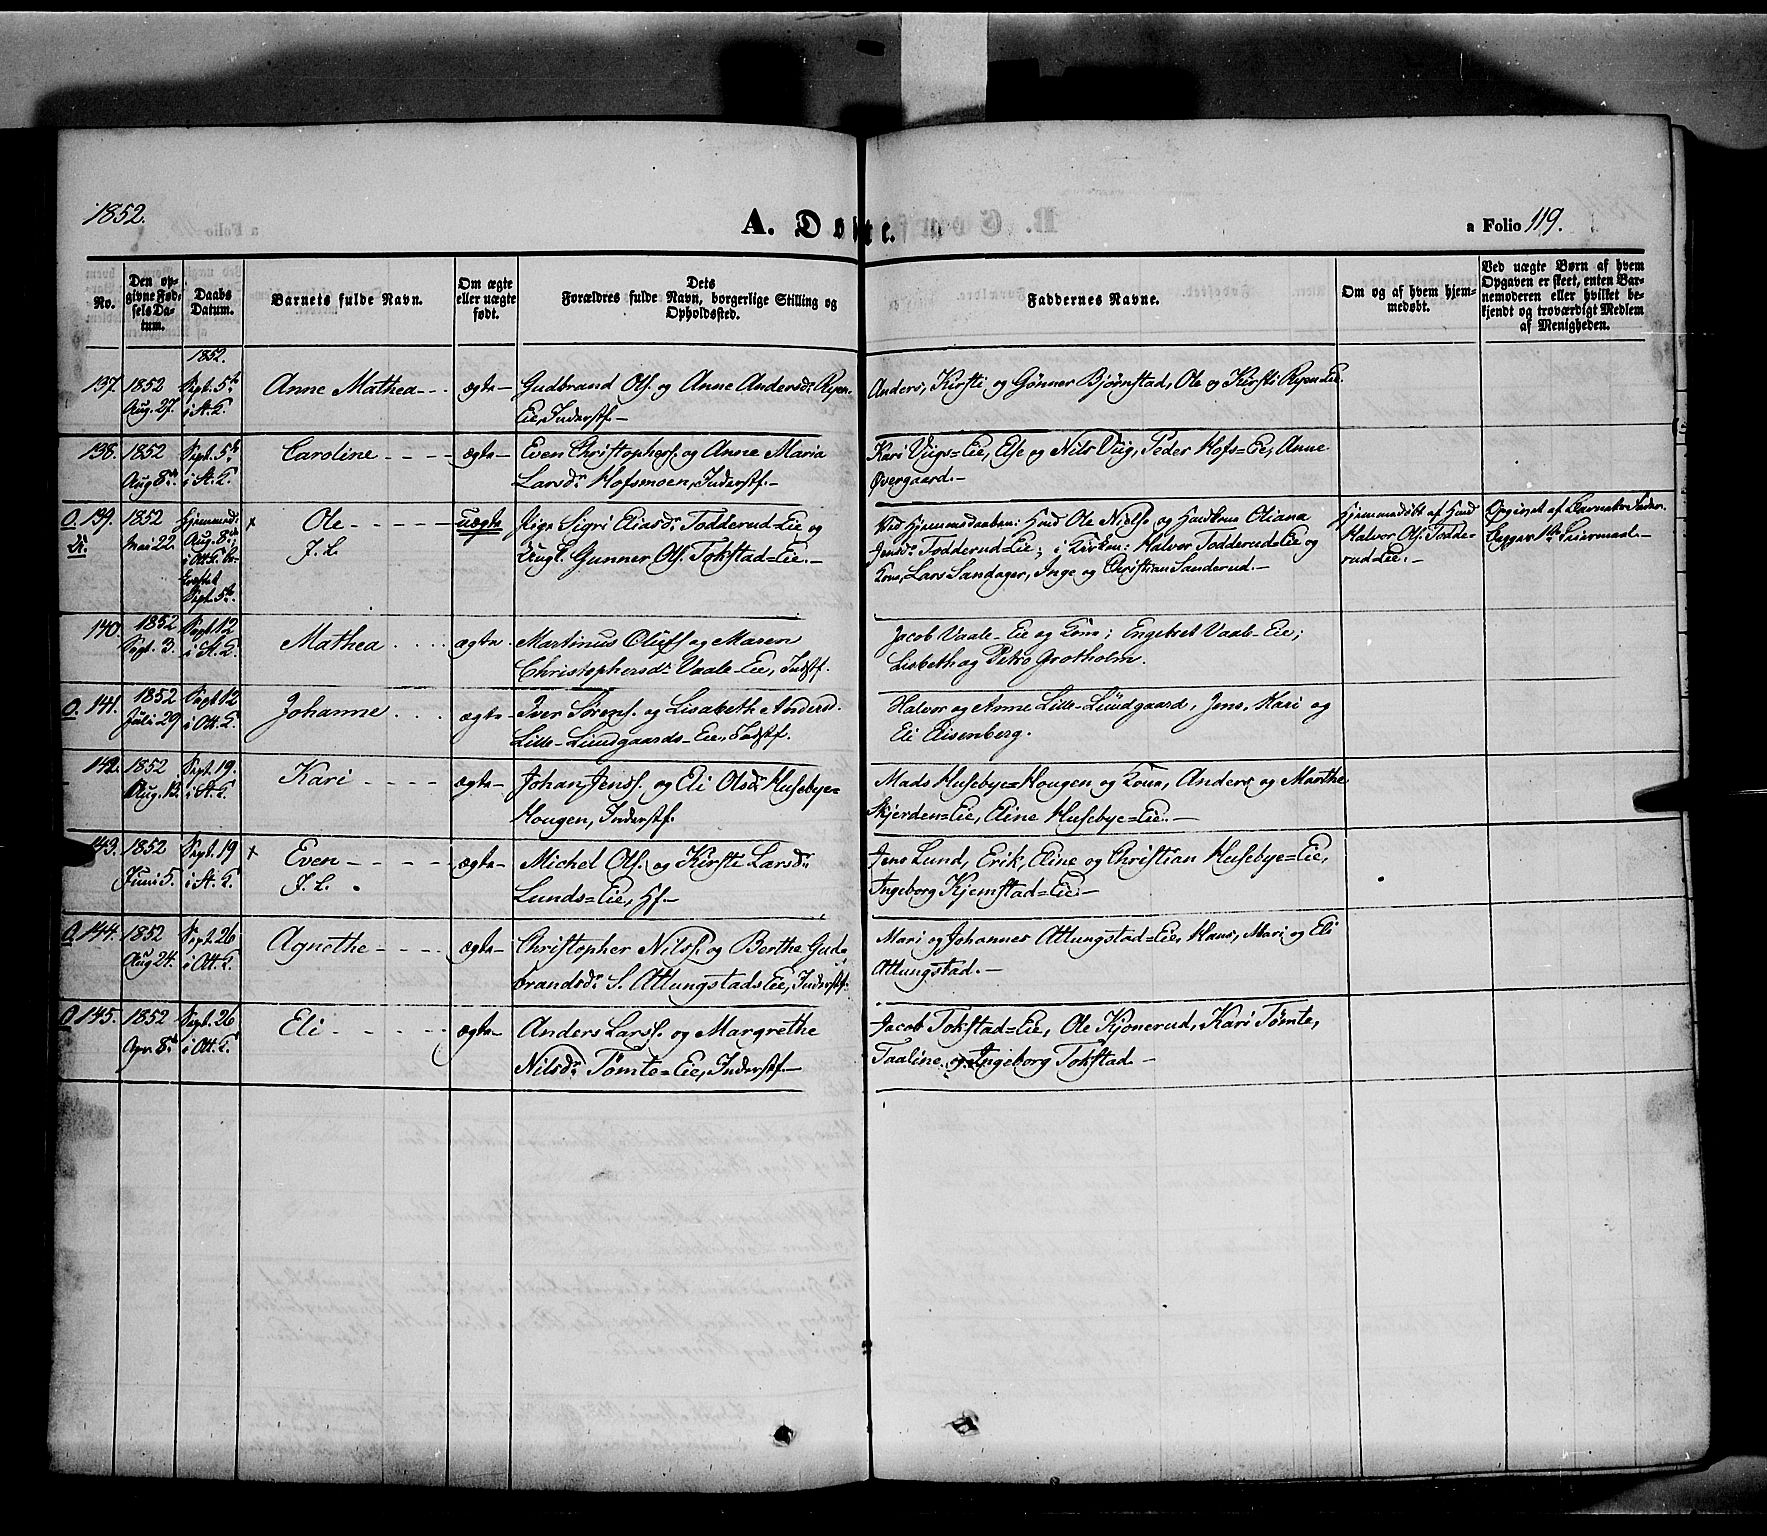 1852.
A. Døbte.
a Folio 119.
No.
Den op-
givne Fød-
sels Da-
tum.
Daabs
Datum.
Barnets fulde Navn.
Om ægte
eller uægte
født.
Dets
Forældres fulde Navn, borgerlige Stilling og
Opholdssted.
Faddernes Navne.
Om og af hvem hjem-
medøbt.
Ved uægte Børn af hvem
Opgaven er skeet, enten Bar-
nemoderen eller hvilket be-
kjendt og troværdigt Medlem
af Menigheden.
1852.
137. 1852 Sept. 5te Anne Mathea - - ægte - Gudbrand Ols. og Anne Andersdr Ryen- Anders, Kirsti og Gønner Bjørnstad, Ole og Kirsti Ryen=Eie.
Aug. 27. i A.K. Eie, Inderstf. -
138. 1852 Sept. 5te Caroline - - - - ægte - Even Christophers. og Anne Maria Kari Viigs=Eie, Else og Nils Viig, Peder Hofs=Eie, Anne
Aug 8de. i A.K. Larsdr Hofsmoen, Inderstf. - Øvergaard. -
O. 139. 1852 Hjemmed: x Ole - - - - - uægte Pige Sigri Eliasdr Todderud=Eie og Ved Hjemmedaaben: Huusmd Ole Niels. og Huuskone Oliana Hjemmedøbt af Huusmd Opgivet af Barnets Fader.
Di. Mai 22. Aug. 8de J. L. Ungk. Gunner Ols. Tokstad=Eie. - Jensdr Todderud=Eie; i Kirken: Halvor Todderud=Eie og Halvor Ols. Todde- Begges 1ste Leiermaal. -
i Ott. K. be- Kone, Lars Sandager, Inge og Christian Sanderud. - rud=Eie. -
kræftet
Sept. 5te.
140. 1852 Sept 12 Mathea . . . . ægte. Martinus Olufs. og Maren Jacob Vaale-Eie og Kone; Engebret Vaale-Eie;
Sept. 3. i A.K. Christophersdr Vaale-Eie, Indstf. Lisbeth og Petro Grotholm.
O. 141. 1852 Sept 12 Johanne . . . ægte - Iver Sørens. og Lisabeth Andersd. Halvor og Anne Lille-Lundgaard, Jens, Mari og
Juli 29 i Ott. K. Lille-Lundgaards-Eie, Indstf. Eli Eisenberg.
142. 1852 Sept. 19. Kari - - - - ægte - Johan Jens. og Eli Olsdr Husebye= Mads Husebye=Hougen og Kone, Anders og Marthe
Aug. 13. i A.K. Hougen, Inderstf. Skjerden=Eie, Eline Husebye=Eie. -
143. 1852 Sept. 19 x Even - - - - - ægte - Michel Ols. og Kirsti Larsdr Jens Lund, Erik, Eline og Christian Husebye=Eie,
Juni 5. i A.K. J. L. Lunds=Eie, Hf. - Ingeborg Kjemstad=Eie. -
O. 144. 1852 Sept. 26 Agnethe - - - - ægte - Christopher Nilss. og Berthe Gud- Mari og Johannes Attungstad=Eie, Hans, Mari og Eli
Aug 24. i Ott. K. brandsdr S. Attungstads Eie, Inderstf. Attungstad. -
O. 145. 1852 Sept. 26 Eli - - - - - ægte - Anders Larss. og Margrethe Jacob Tokstad=Eie, Ole Kjonerud, Kari Tømte,
Apr. 8de i Ott. K. Nilsdr Tømte=Eie, Inderstf. - Taaline og Ingeborg Tokstad. -